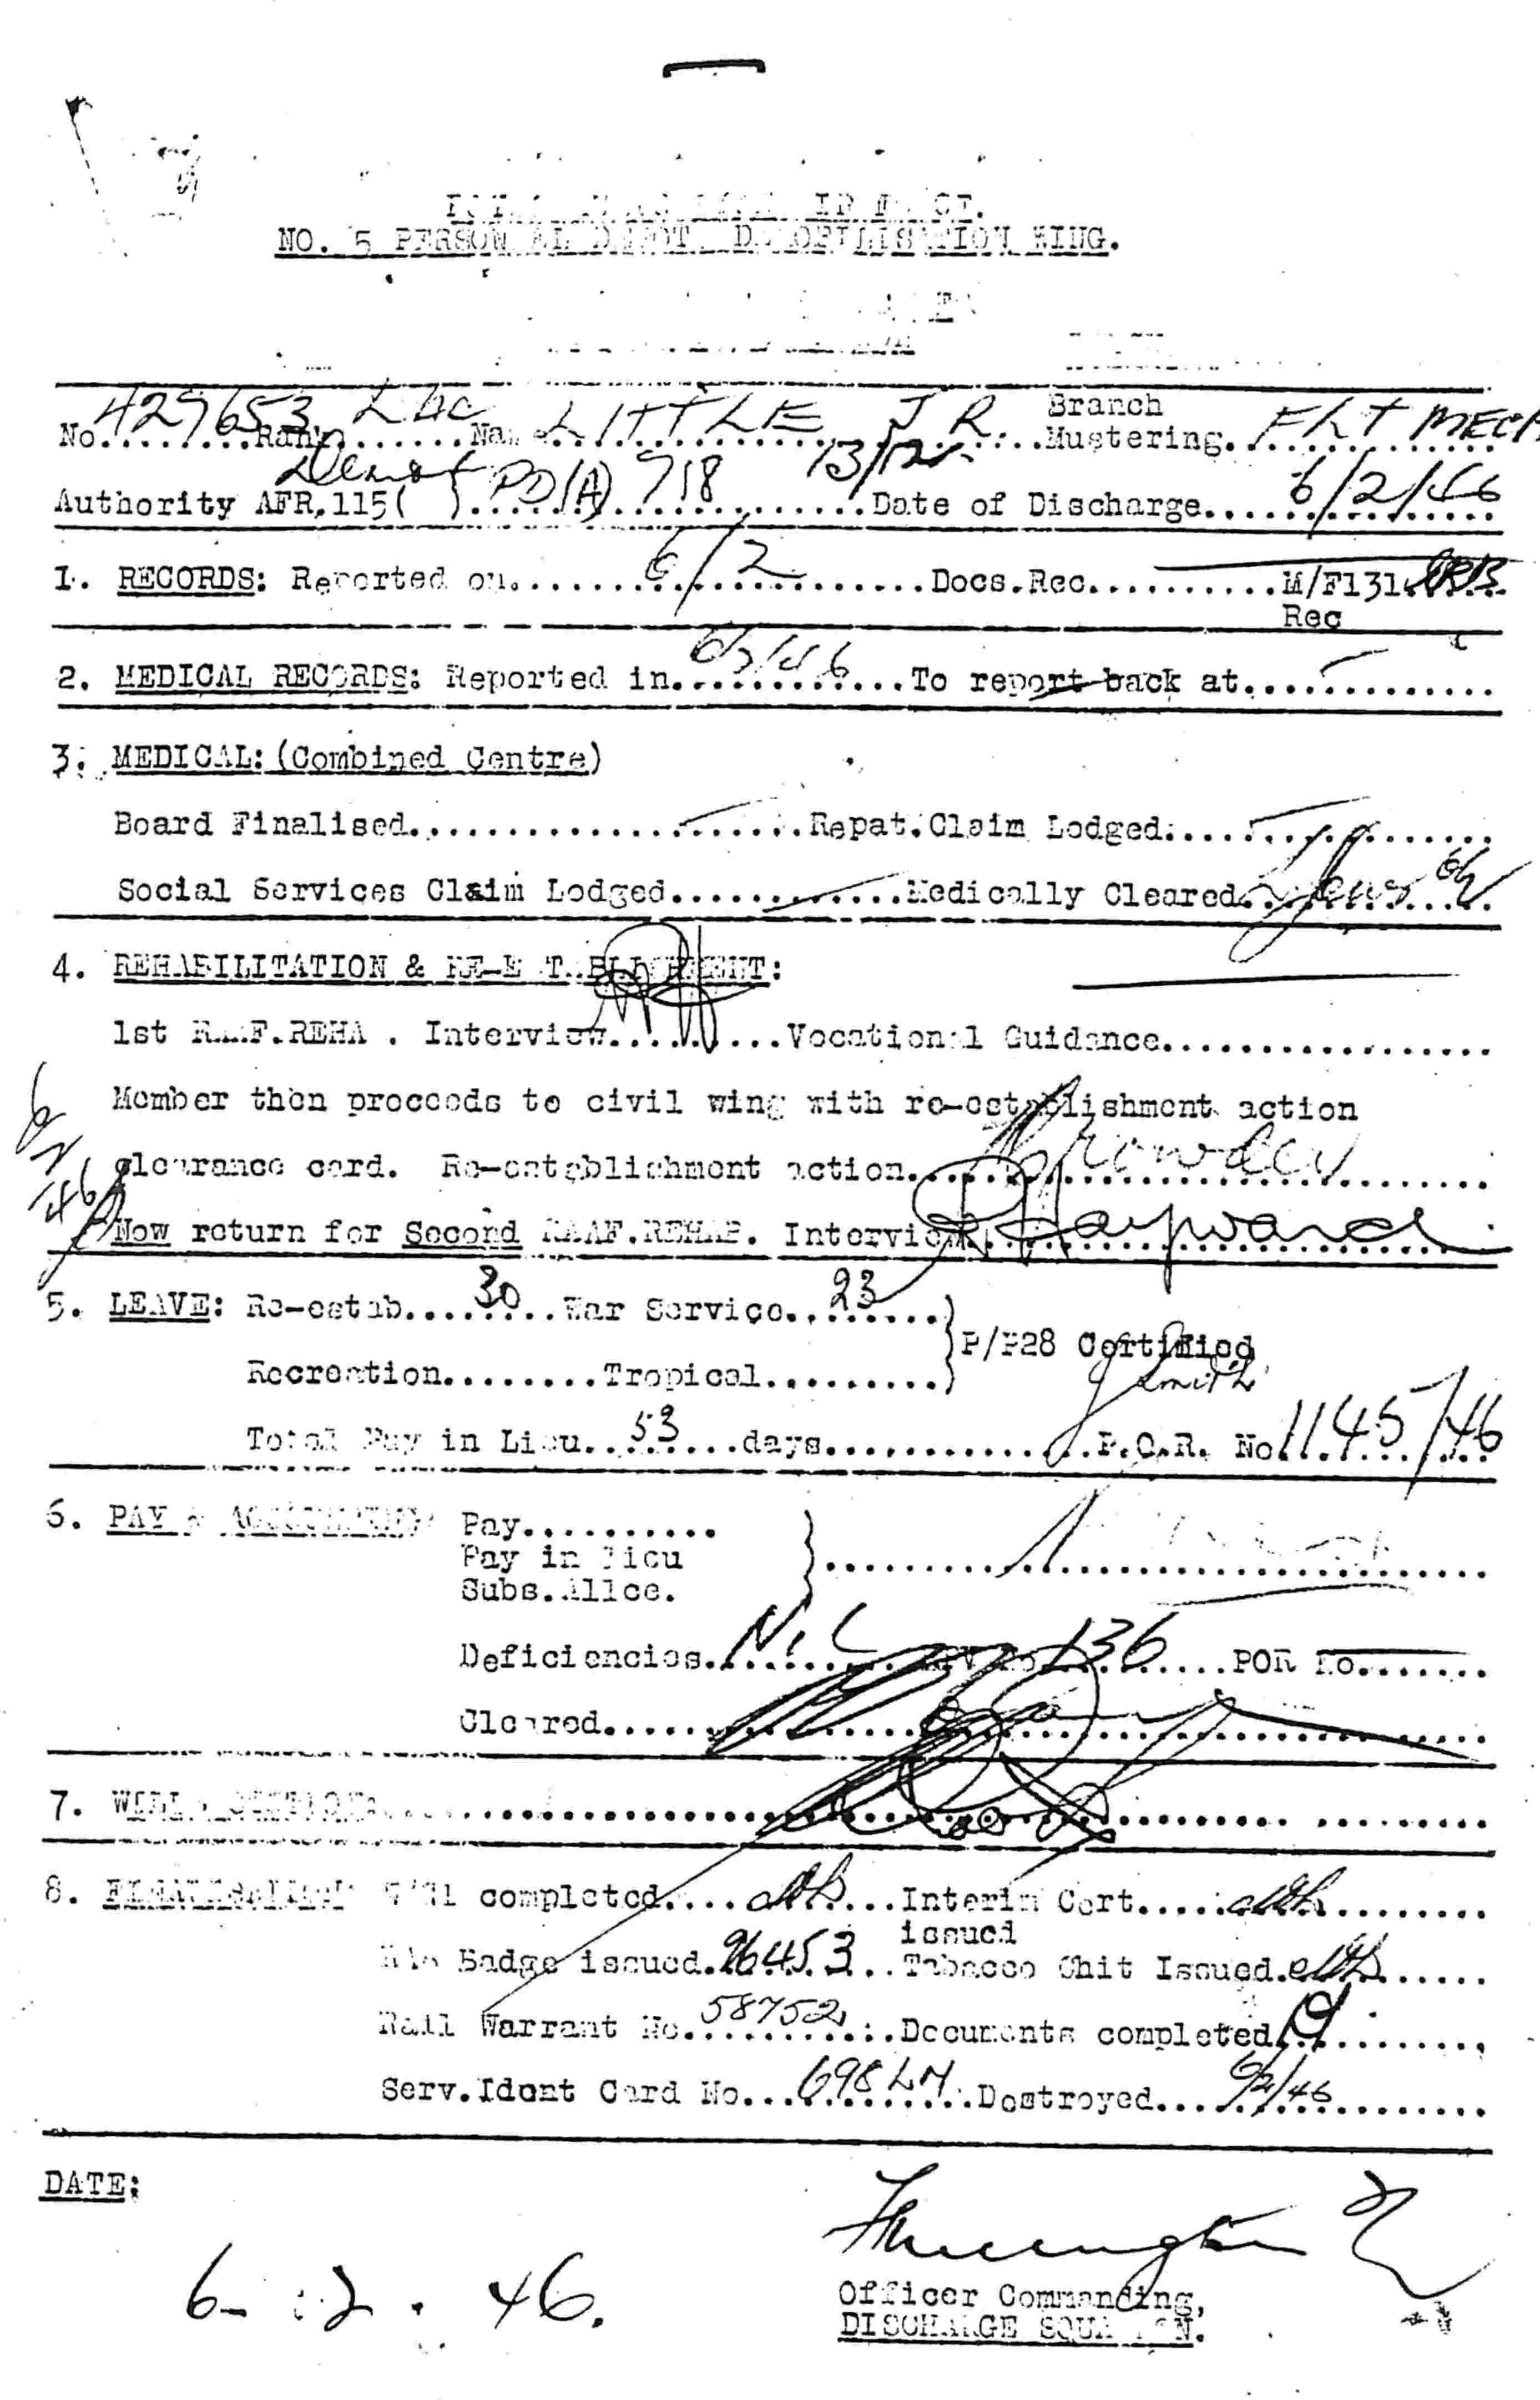 NO. 5 PERSONNEL DEPOT DEMOBILISATION WING.
No. 429653 Rank LAC Name LITTLE J R Branch Mustering. FLT MECH
Authority AFR.115( ) Demob PD(A) 718 13/12 Date of Discharge 6/2/46
1. RECORDS: Reported on 6/2 Docs.Rec. M/F131
Rec
2. MEDICAL RECORDS: Reported in 6/2/46 To report back at
3. MEDICAL: (Combined Centre)
Board Finalised Repat.Claim Lodged
Social Services Claim Lodged Medically Cleared
4. REHABILITATION & RE-ESTABLISHMENT:
1st R.A.A.F.REHAB. Interview Vocational Guidance
Member then proceeds to civil wing with re-establishment action
clearance card. Re-establishment action
6/2/46 Now return for Second RAAF.REHAB. Interview Hayward
5. LEAVE: Re-estab. 30 War Service 23
P/P28 Certified
Recreation Tropical J Smith
Total Pay in Lieu 53 days P.O.R. No 1145/46
6. PAY & Pay
Pay in lieu
Subs.Allce.
Deficiencies Nil 136 POR No
Cleared
7.
8. FINALISATION Will completed Interim Cert.
issued
Badge issued 96453 Tobacco Chit Issued
Rail Warrant No. 58752 Documents completed
Serv.Ident Card No. Destroyed 6/2/46
DATE:
6-2.46.
Officer Commanding,
DISCHARGE SQUADRON.